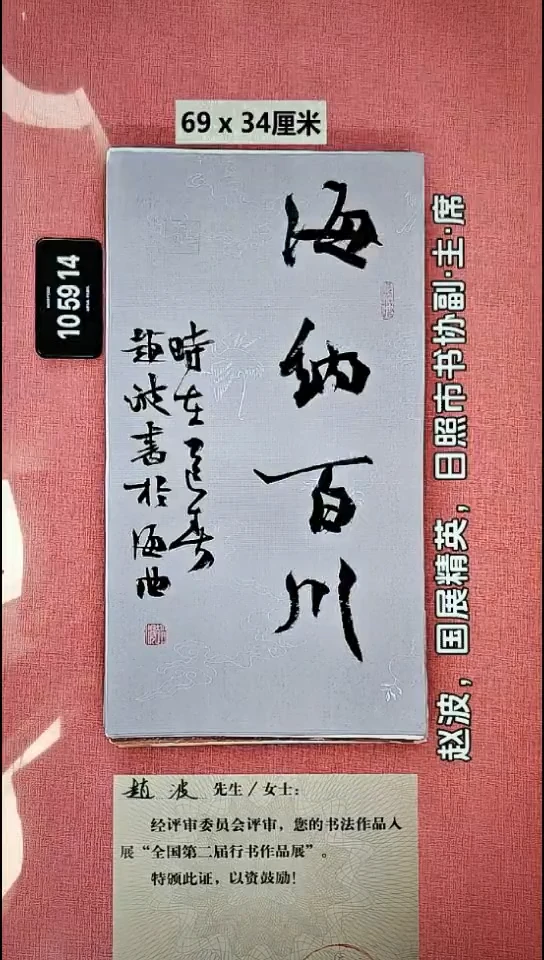 69 x 34厘米
10 59 14
海納百川
時在乙巳春
趙波書於海曲
赵波，国展精英，日照市书协副·主·席
趙波 先生／女士：
经评审委员会评审，您的书法作品入
展“全国第二届行书作品展”。
特颁此证，以资鼓励！